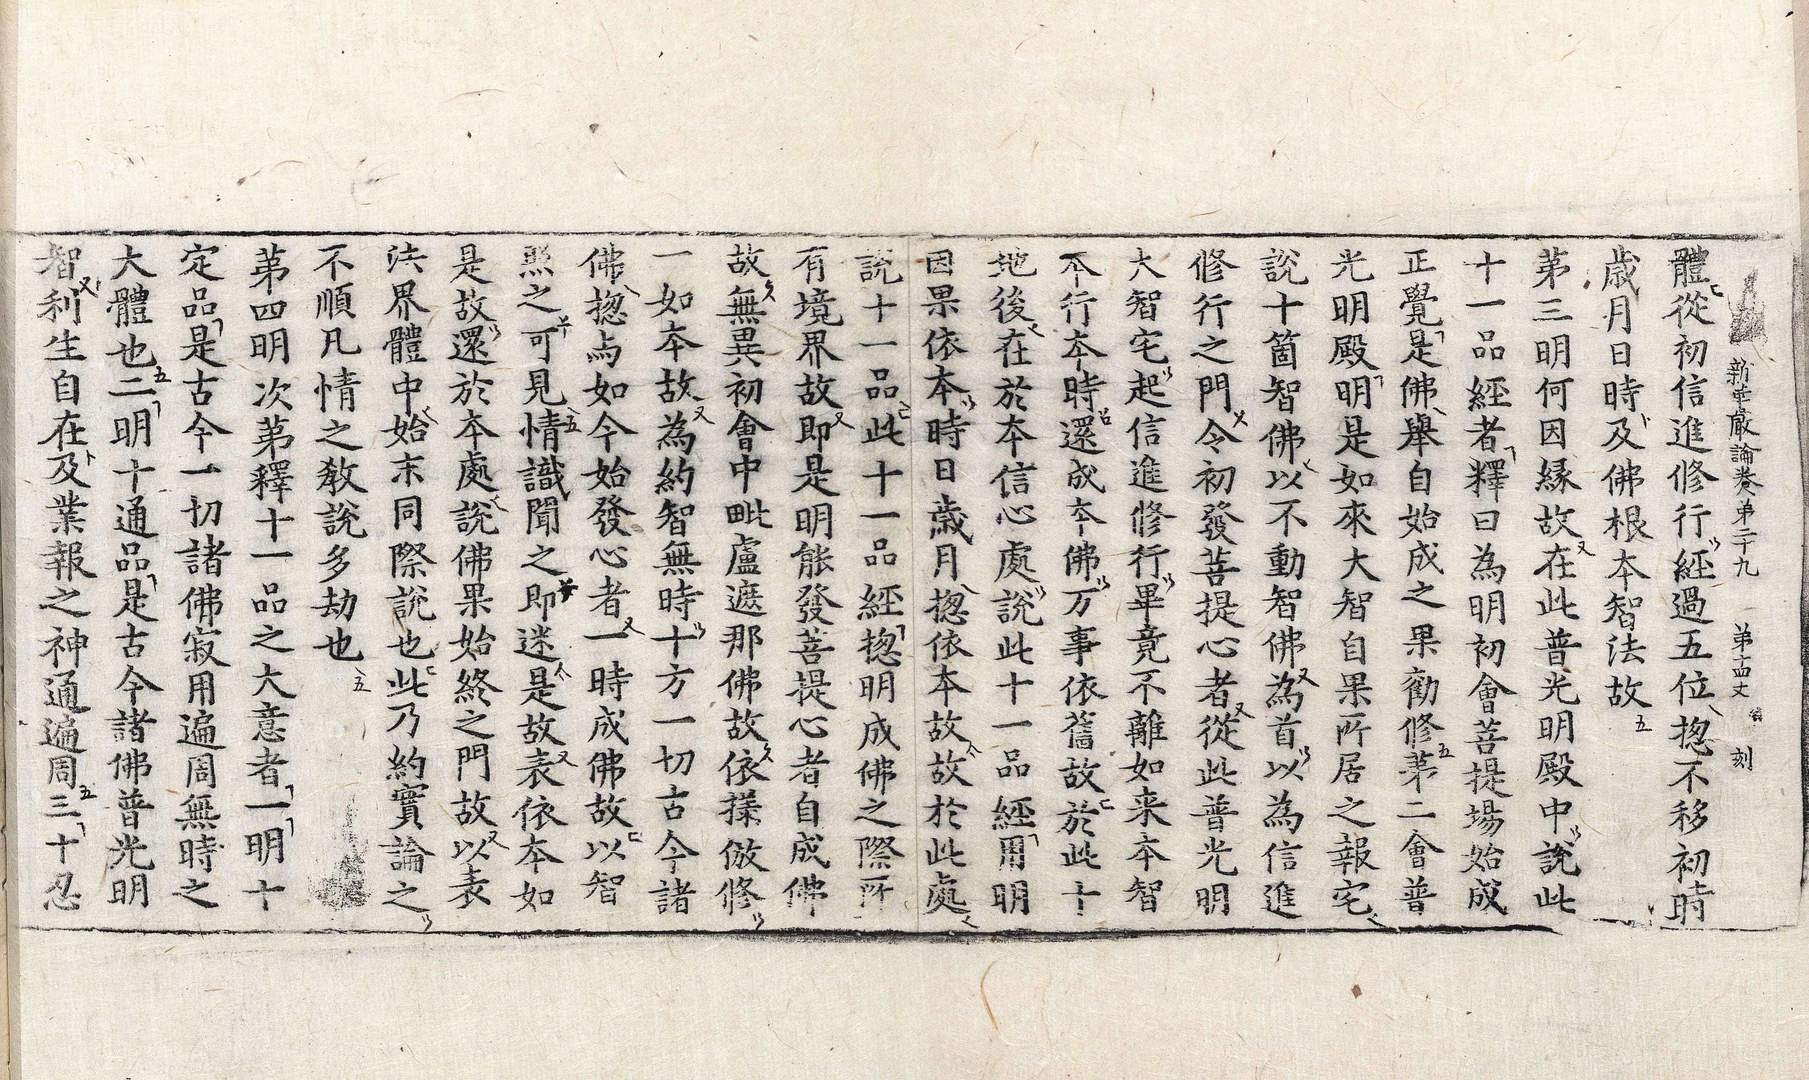 體從初信進修行經過五位揔不移初時
新華嚴論卷第二十九 第十四丈 刻
歳月日時及佛根本智法故
第三明何因縁故在此普光明殿中說此
十一品經者釋曰為明初會菩提場始成
正覺是佛舉自始成之果勸修第二會普
光明殿明是如來大智自果所居之報宅
說十箇智佛以不動智佛為首以為信進
修行之門令初發菩提心者從此普光明
大智宅起信進修行畢竟不離如来本智
本行本時還成本佛万事依舊故於此十
地後在於本信心處說此十一品經用明
因果依本時日歳月揔依本故故於此處
說十一品此十一品經揔明成佛之際所
有境界故即是明能發菩提心者自成佛
故無異初會中毗盧遮那佛故依㨾倣修
一如本故為約智無時十方一切古今諸
佛揔与如今始發心者一時成佛故以智
照之可見情識聞之即迷是故表依本如
是故還於本處說佛果始終之門故以表
法界體中始末同際說也此乃約實論之
不順凡情之教說多劫也
第四明次第釋十一品之大意者一明十
定品是古今一切諸佛寂用遍周無時之
大體也二明十通品是古今諸佛普光明
智利生自在及業報之神通遍周三十忍